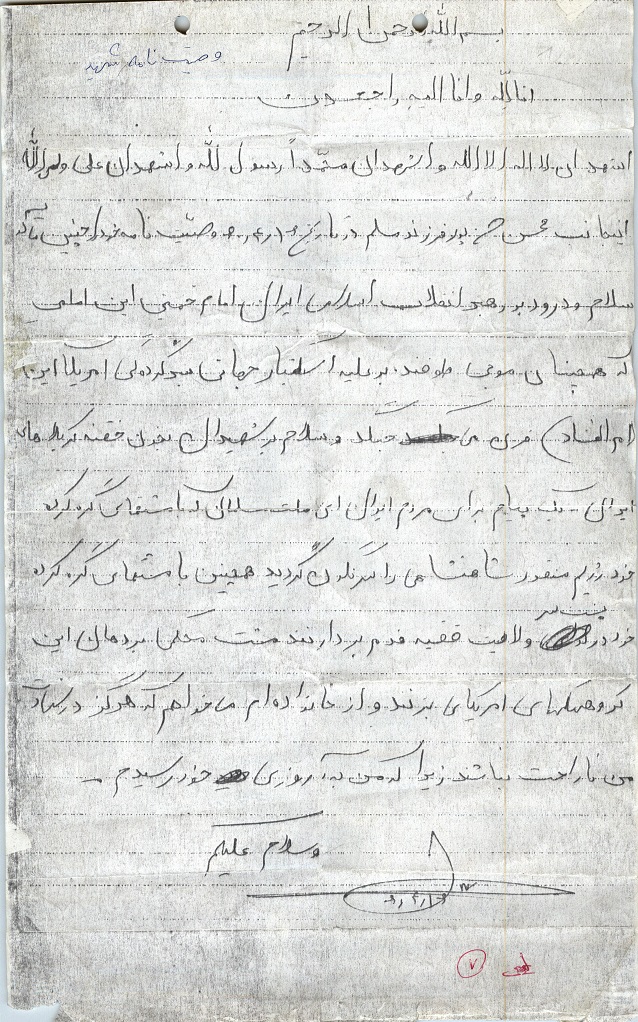 بسم الله الرحمن الرحیم
وصیت نامه شهید
انا لله وانا الیه راجعون
اشهد ان لا اله الا الله و اشهد ان محمداً رسول الله و اشهد ان علی ولی الله
اینجانب محسن پور فرزند مسلم در تاریخ وصیت نامه خود را چنین
سلام و درود بر رهبر انقلاب اسلامی ایران امام خمینی این
که همچنان موجی طوفنده بر علیه استکبار جهانی آمریکا این
ام الفساد قرن می جنگد و سلام بر شهیدان بخون خفته کربلا های
ایران یک پیام برای مردم ایران این ملت مسلمان که با مشتهای گره کرده
خود رژیم منفور شاهنشاهی را سرنگون گردید همچنین با مشتهای گره کرده
پشت سر
خود در ولایت فقیه قدم بردارند مشت محکمی بر دهان این
گروهکهای امریکای بزنند و از خانواده ام میخواهم که هرگز در
من ناراحت نباشند زیرا که من به آرزوی خود رسیدم
وسلام علیکم
۷